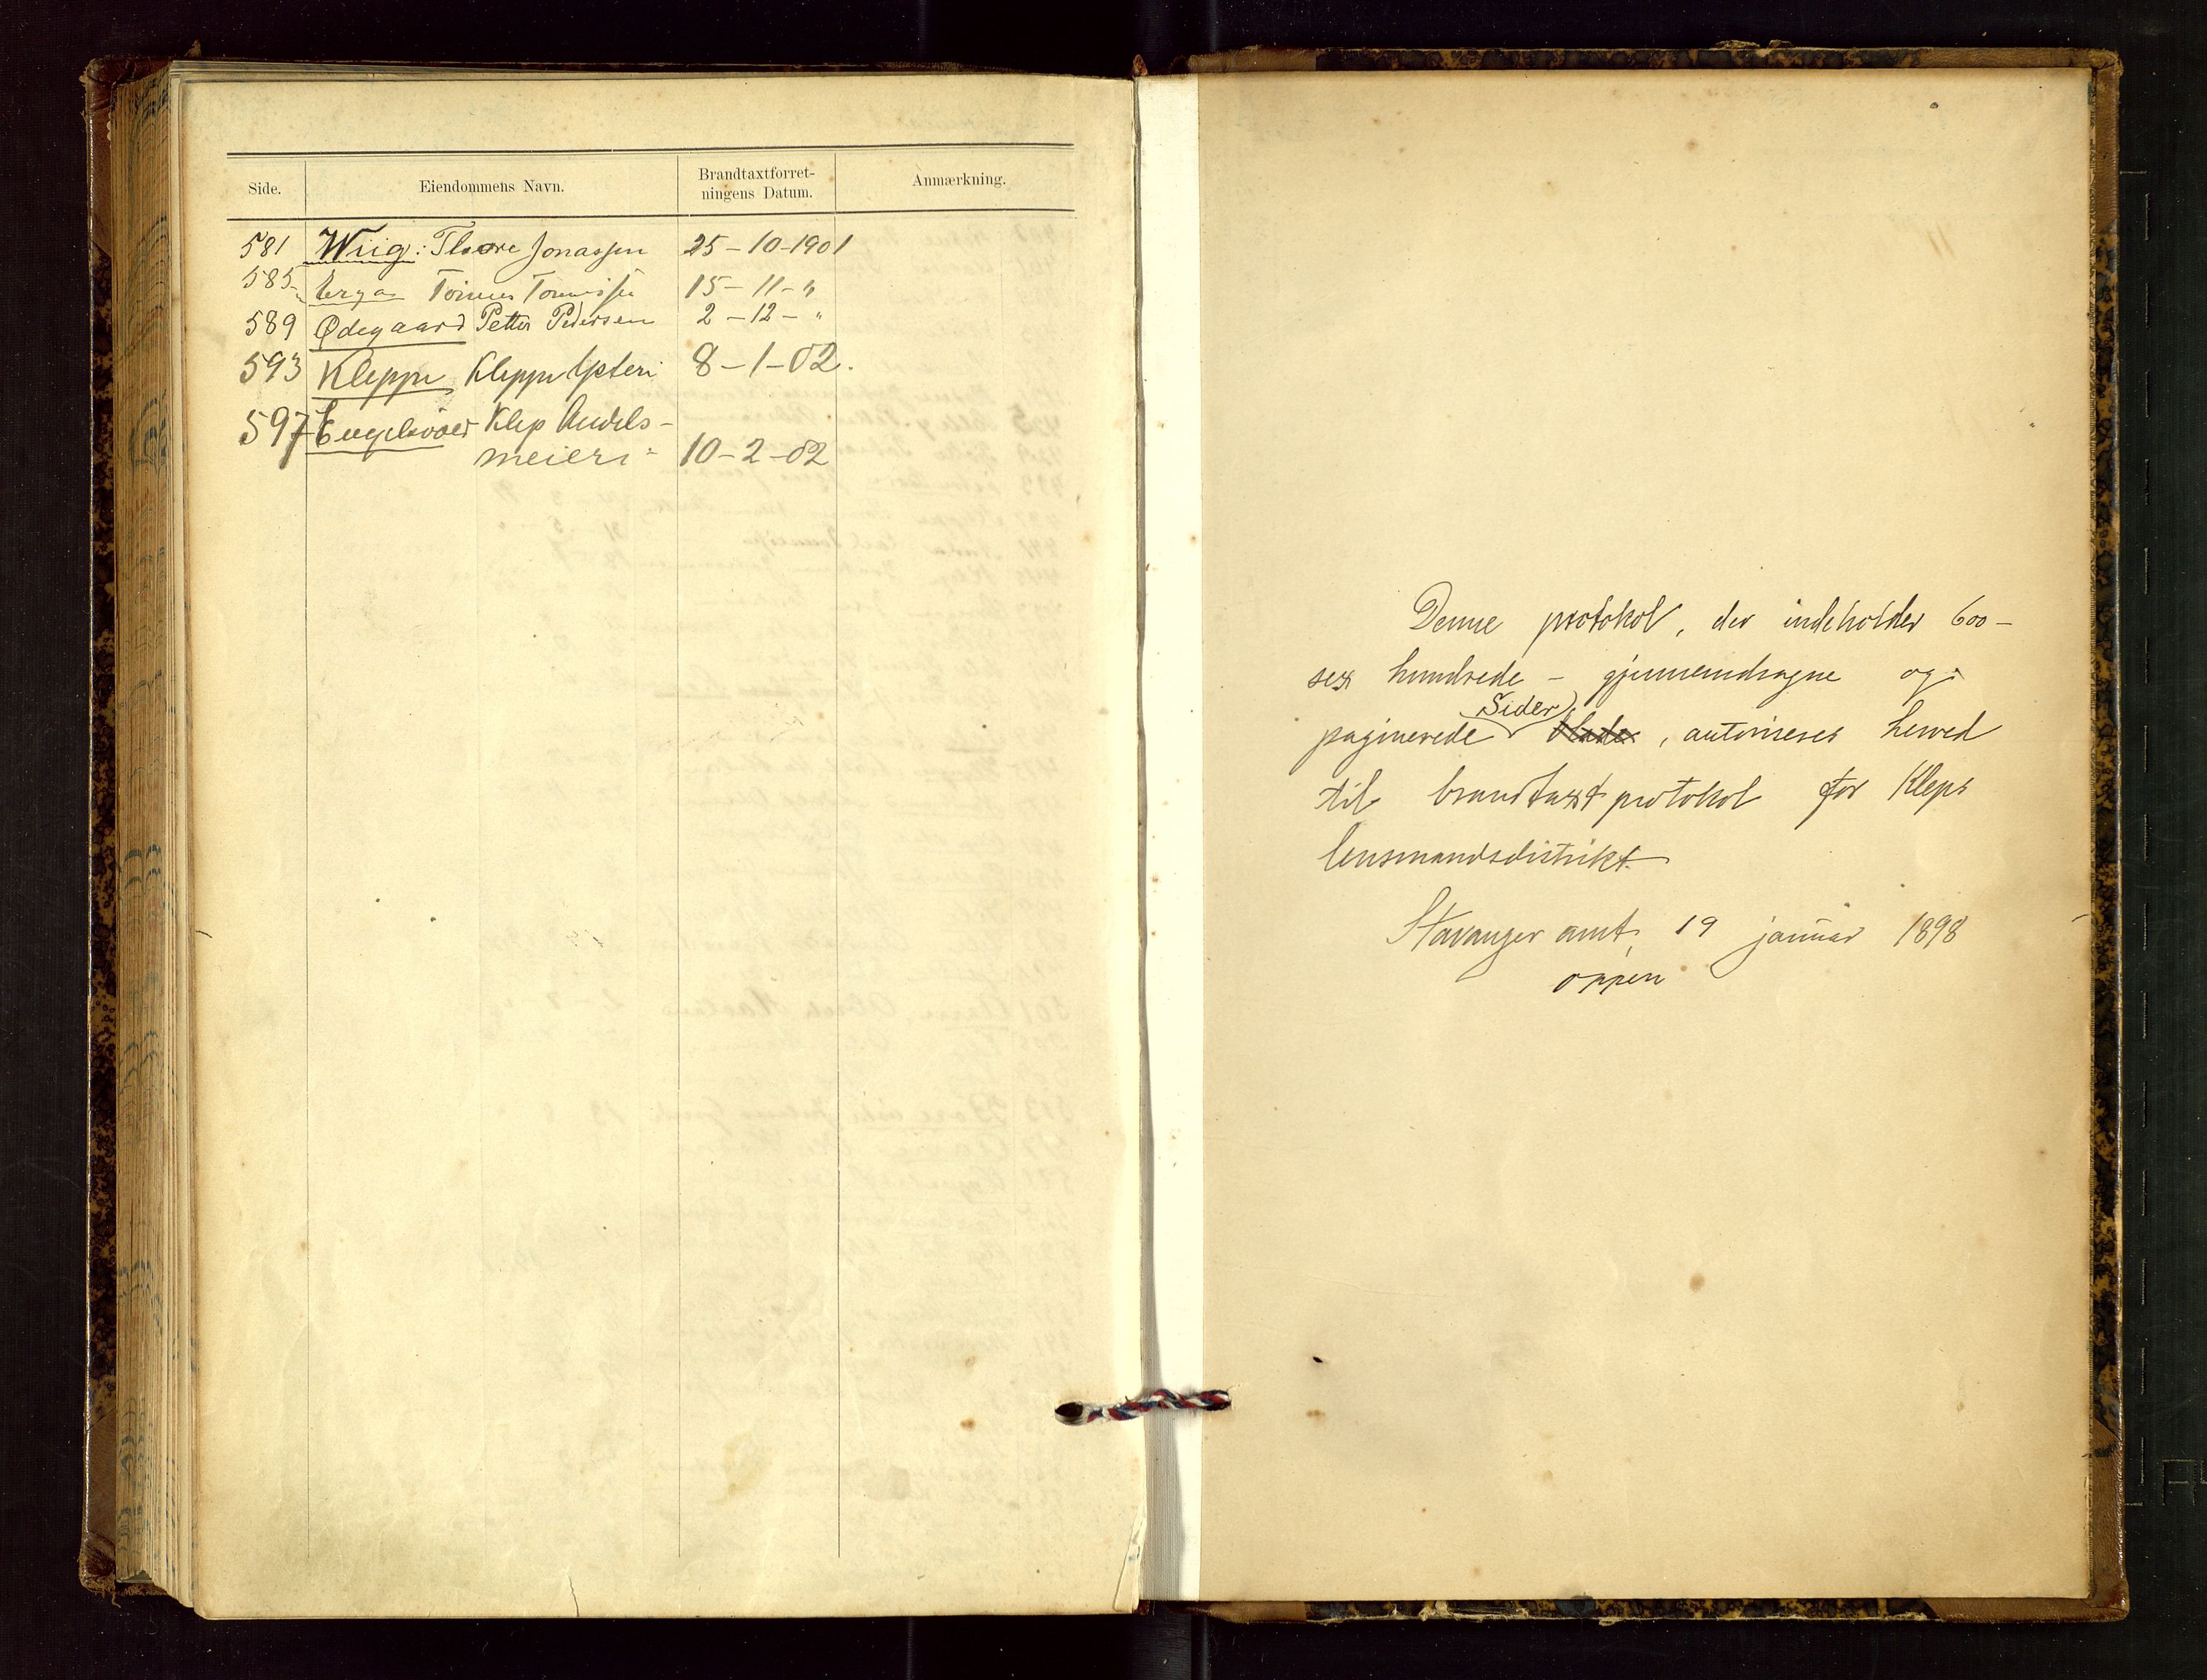 Side. Eiendommens Navn. Brandtaxtforret-
ningens Datum. Anmærkning.
581 Wiig: Thore Jonassen 25-10-1901
585 Erga Tønnes Tønnesen 15-11-"
589 Ødegaard Petter Pedersen 2-12-"
593 Kleppe Kleppe Ysteri 8-1-02.
597 Engelsvold Klep Andels-
meieri 10-2-02
Denne protokol, der indeholder 600-
sex hundrede - gjennemdragne og
Sider
paginerede blade, autoriseres herved
til brandtaxtprotokol for Kleps
lensmandsdistrikt
Stavanger amt, 19 januar 1898
Oppen